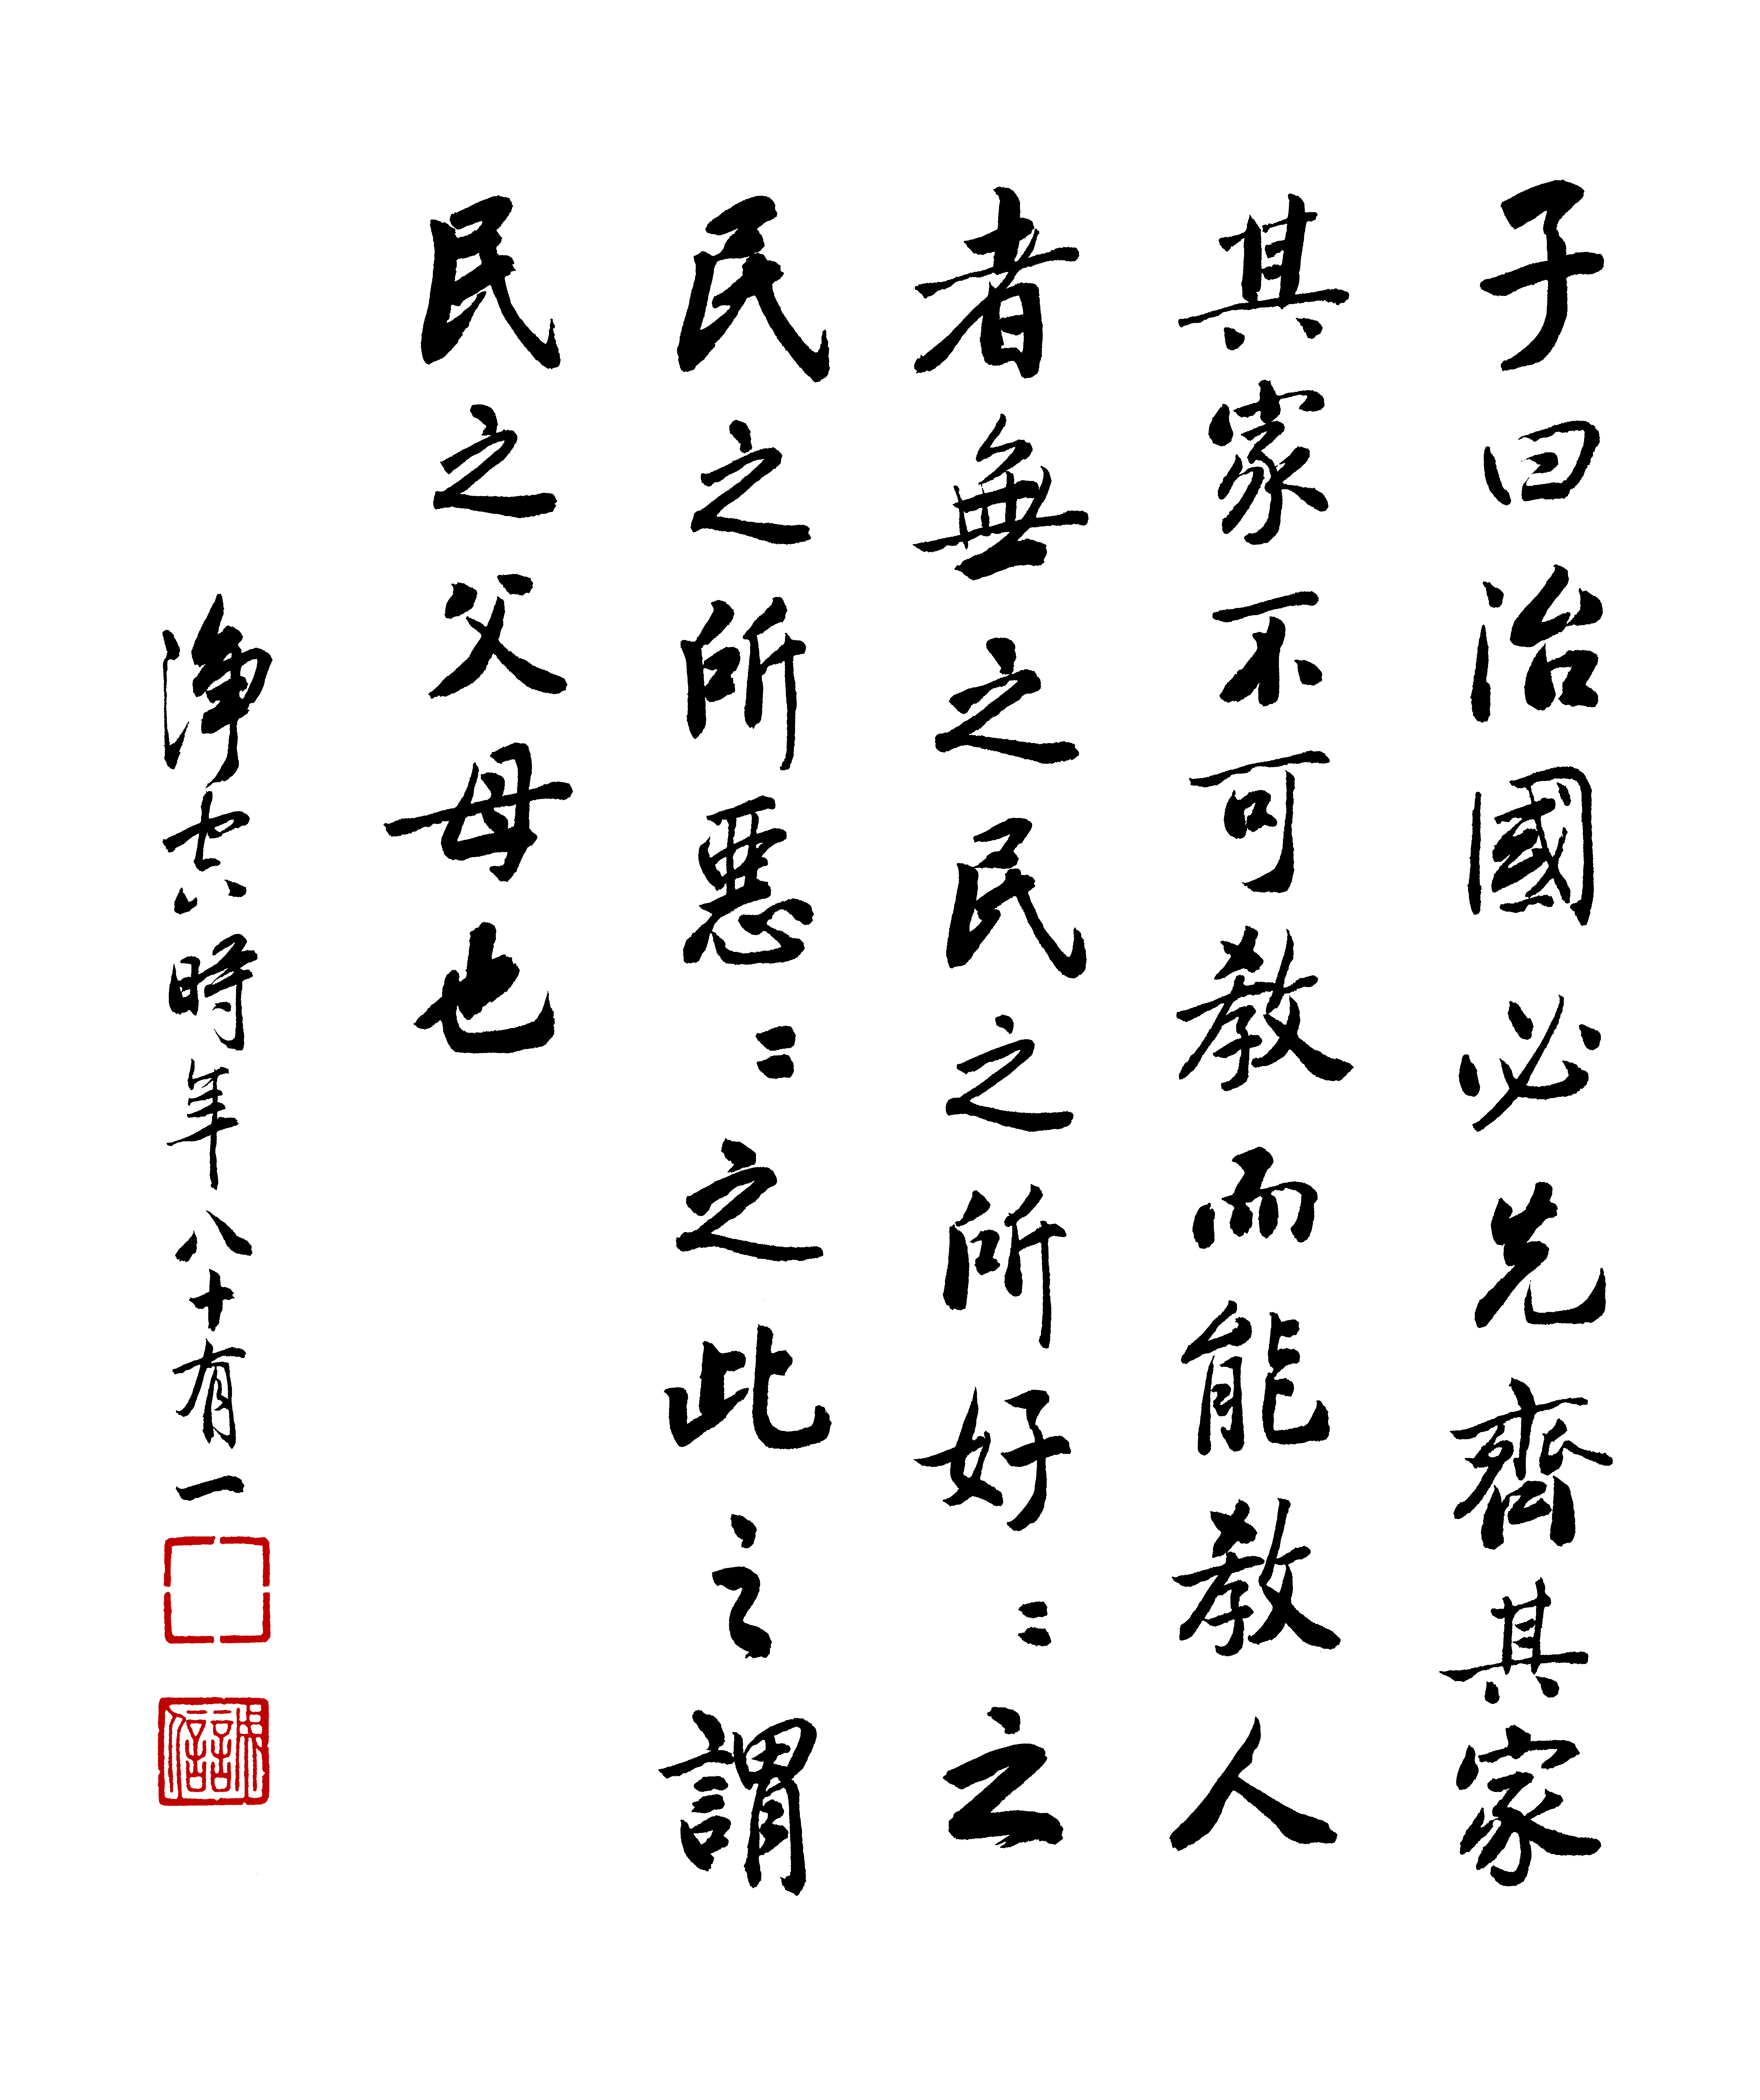 子曰治國必先齊其家
其家不可教而能教人
者無之民之所好〻之
民之所惡〻之此之謂
民之父母也
淨空時年八十有一